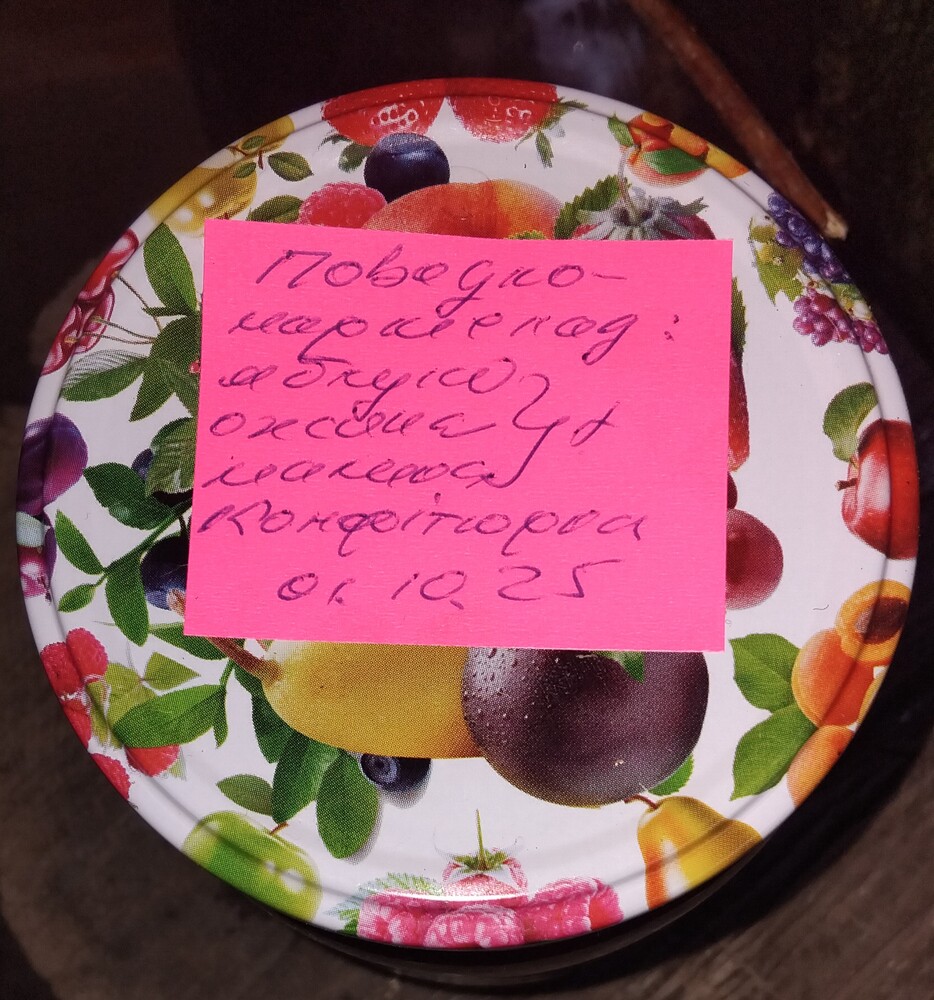 Повидло-
мармелад:
яблуко
ожина } +
малина
Конфітюрка
01.10.25